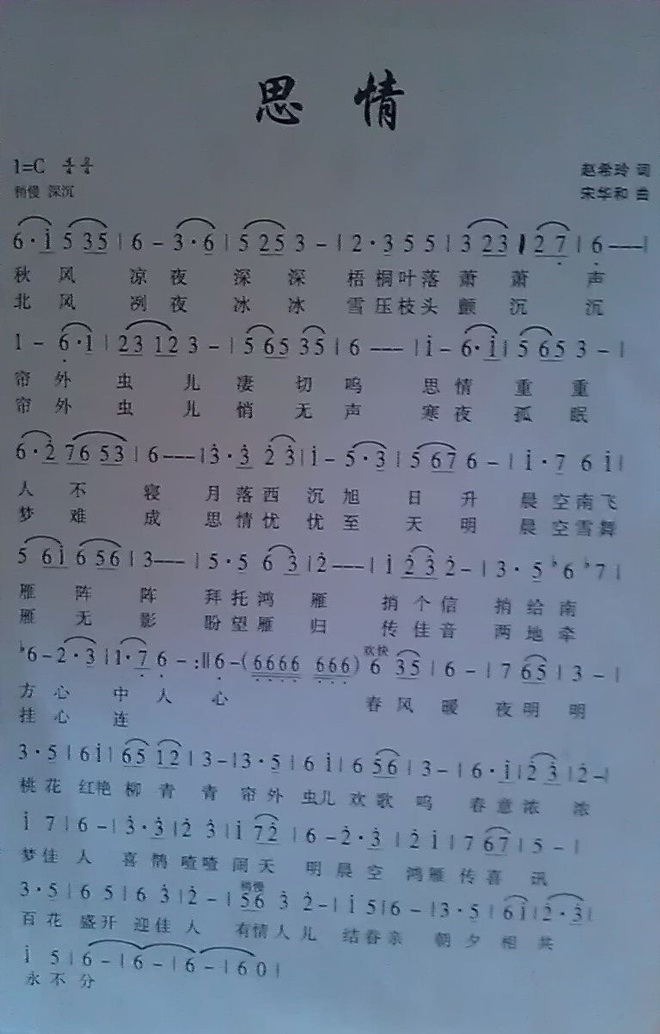 思情
1=C 4/4 2/4
赵希玲 词
稍慢 深沉
宋华和 曲
6·i 5 35 | 6 - 3·6 | 5 253 3 - | 2·3 5 5 | 3 23 | 2 7 | 6 --- |
秋 风 凉 夜 深 深 梧 桐 叶 落 萧 萧 声
北 风 冽 夜 冰 冰 雪 压 枝 头 颤 沉 沉
1 - 6·1 | 23 12 3 - | 5 65 35 | 6 --- | i - 6·i | 5 65 3 - |
帘 外 虫 儿 凄 切 鸣 思 情 重 重
帘 外 虫 儿 悄 无 声 寒 夜 孤 眠
6·2 76 53 | 6 --- | 3·3 23 | i - 5·3 | 5 67 6 - | i·7 6 i |
人 不 寝 月 落 西 沉 旭 日 升 晨 空 南 飞
梦 难 成 思 情 忧 忧 至 天 明 晨 空 雪 舞
5 6i 6 56 | 3 --- | 5·5 6 3 | 2 --- | i 23 2 - | 3·5 ♭6 ♭7 |
雁 阵 阵 拜 托 鸿 雁 捎 个 信 捎 给 南
雁 无 影 盼 望 雁 归 传 佳 音 两 地 牵
♭6 - 2·3 | 1·7 6 - :|| 6 - (6666 666) 6 35 | 6 - | 7 65 | 3 - |
欢快
方 心 中 人 心 春 风 暖 夜 明 明
挂 心 连
3·5 | 6 i | 65 12 | 3 - | 3·5 | 6 i | 6 56 | 3 - | 6·i | 2 3 | 2 - |
桃 花 红 艳 柳 青 青 帘 外 虫 儿 欢 歌 鸣 春 意 浓 浓
i 7 | 6 - | 3·3 | 2 3 | i 72 | 6 - 2·3 | 2 i | 7 67 | 5 - |
梦 佳 人 喜 鹊 喳 喳 闹 天 明 晨 空 鸿 雁 传 喜 讯
稍慢
3·5 | 6 5 | 6 3 | 2 - | 56 3 2 - | i 5 | 6 - | 3·5 | 6 i | 2·3 |
百 花 盛 开 迎 佳 人 有 情 人 儿 结 眷 亲 朝 夕 相 共
i 5 | 6 - | 6 - | 6 - | 6 0 |
永 不 分